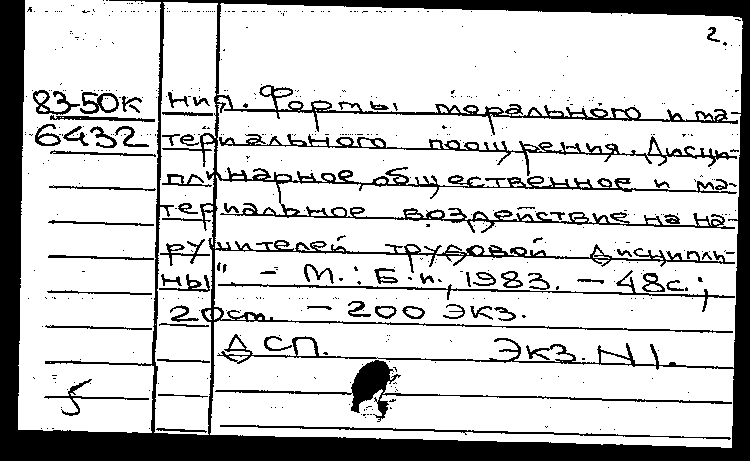 2.
83-50к ния. Формы морального и ма-
6432 териального поощрения. Дисци-
плинарное, общественное и ма-
териальное воздействие на на-
рушителей трудовой дисципли-
ны". – М.: Б.и., 1983. – 48с.;
20см. – 200 экз.
ДСП. Экз. N1.
5